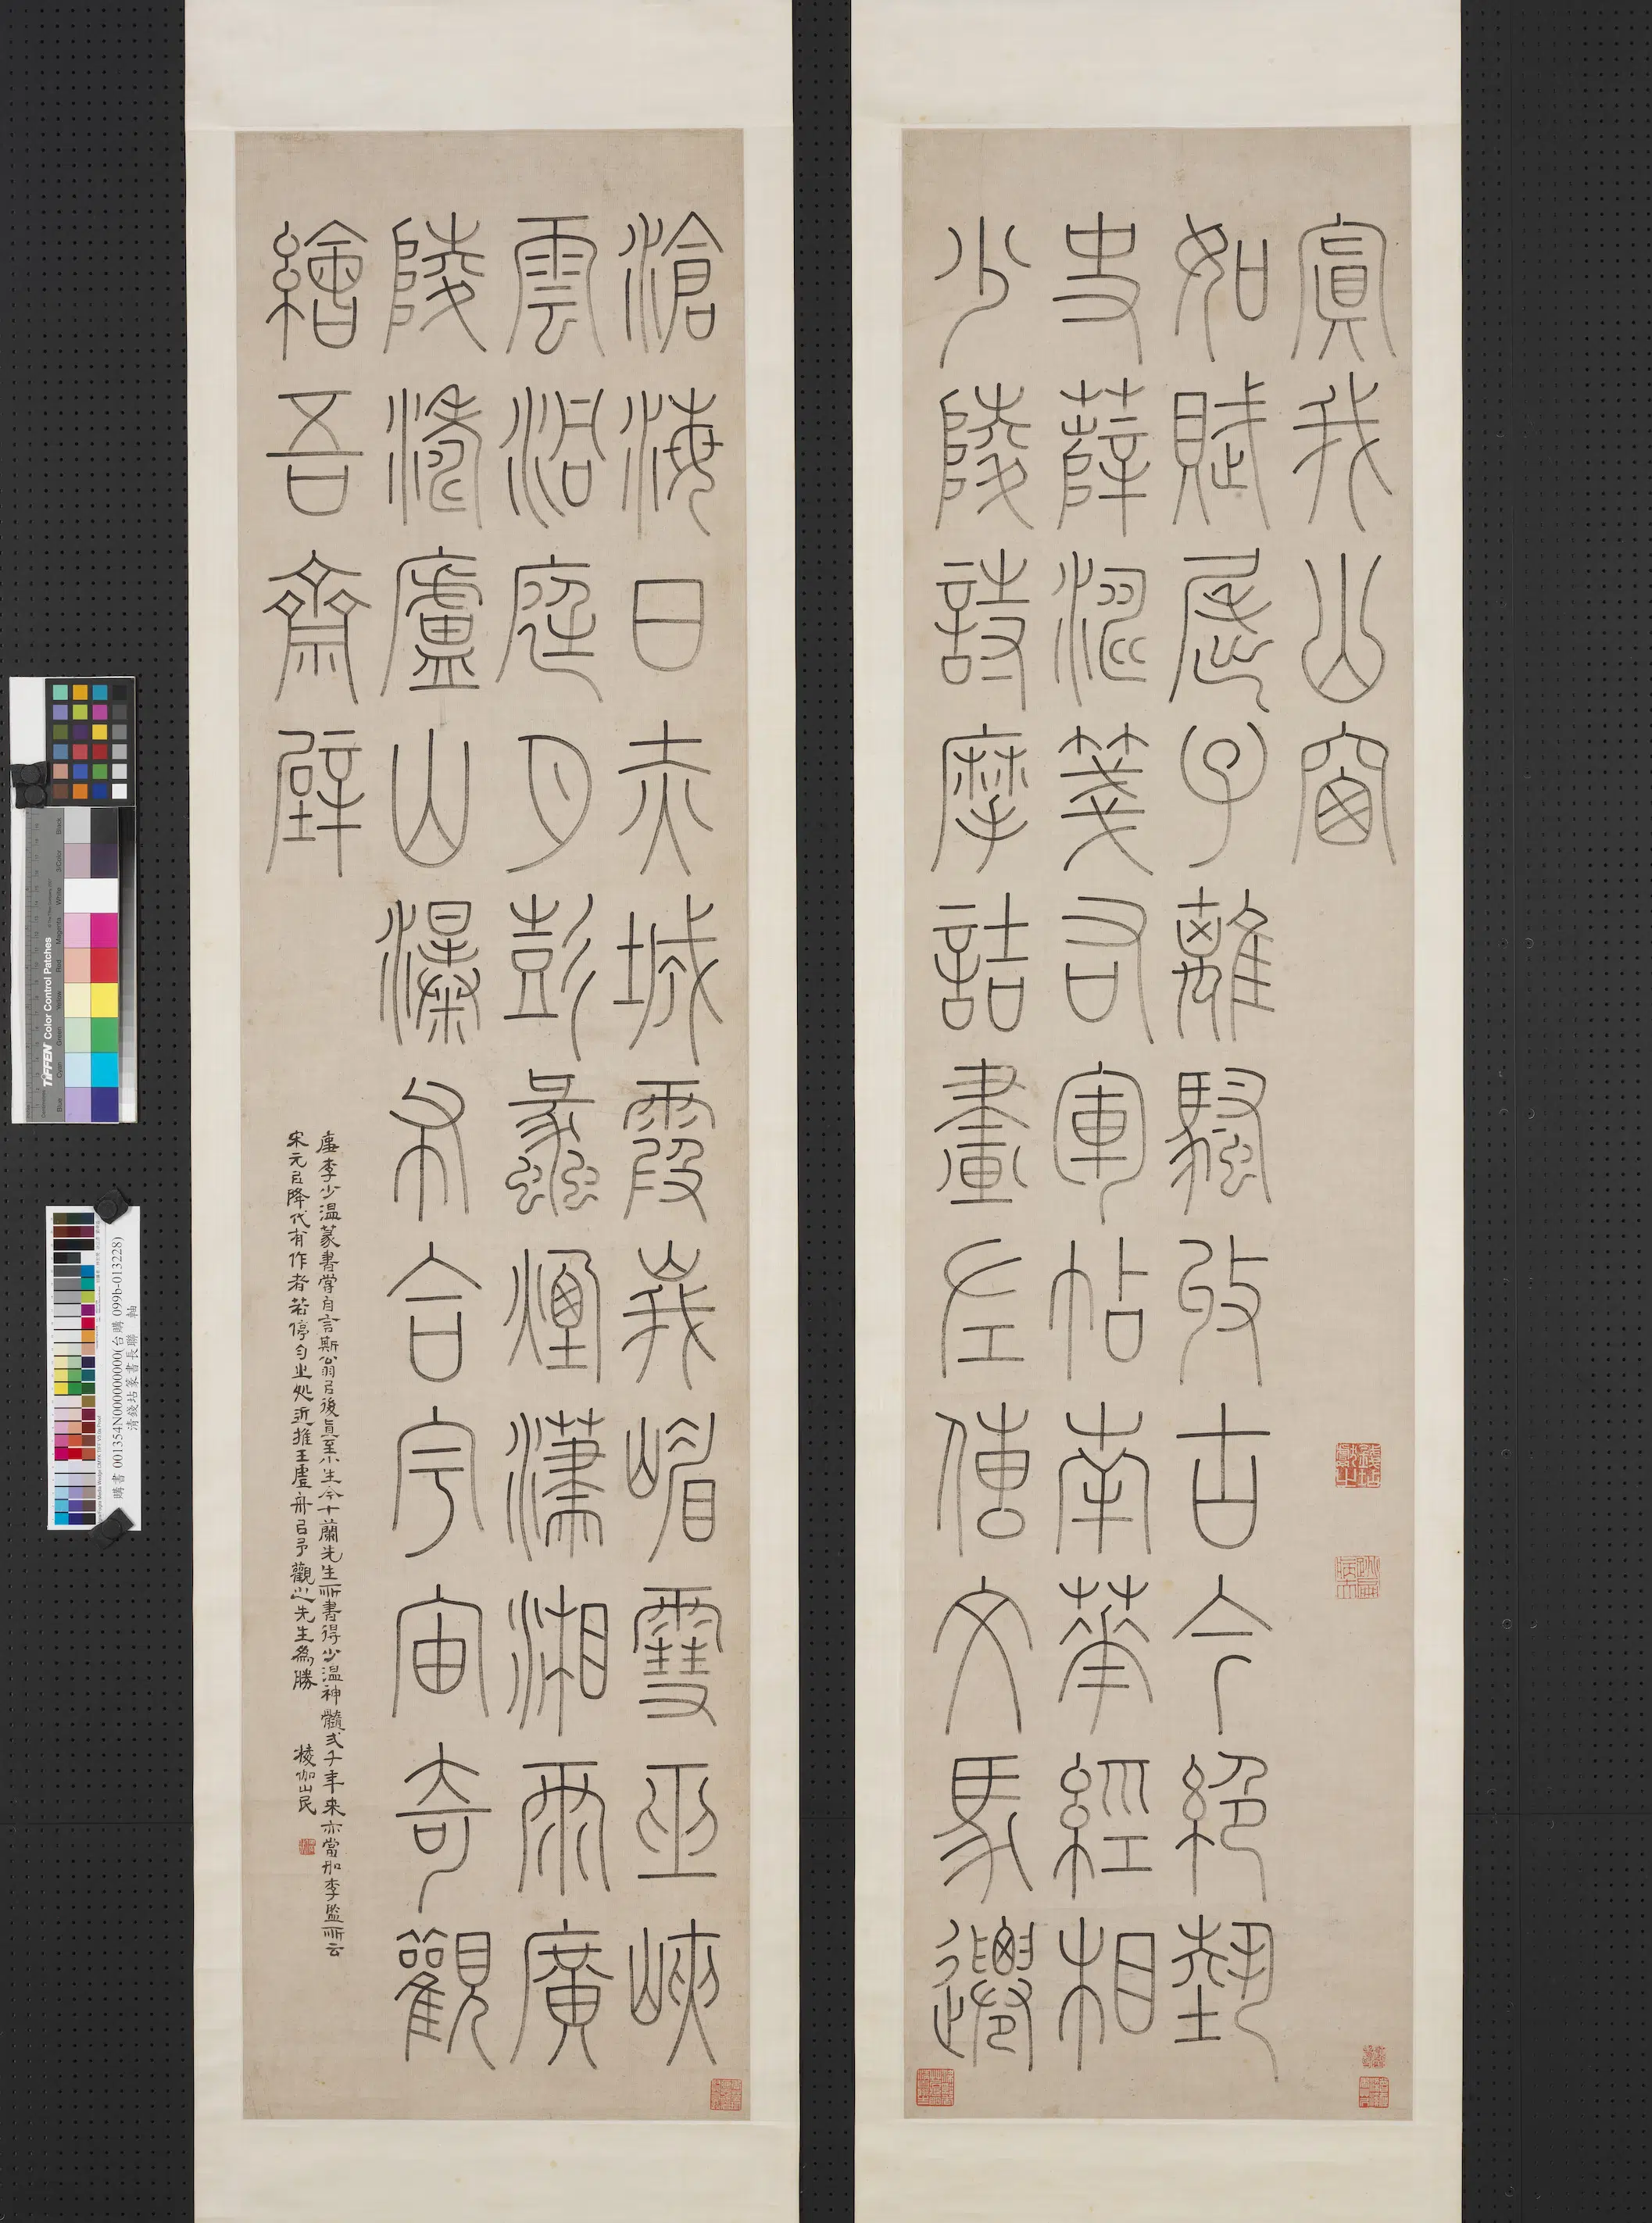 滄海日赤城霞峨嵋雪巫峽
雲洞庭月彭蠡煙瀟湘雨廣
陵濤廬山瀑布合宇宙奇觀
繪吾齋壁
唐李少溫篆書嘗自言斯翁㠯後直至小生今十蘭先生所書得少溫神髓弌千年來亦當如李監所云
宋元㠯降代有作者若停勻之処近推王虛舟㠯予觀之先生為勝 棱伽山民
少陵詩摩詰畫左傳文馬遷
史薛濤箋右軍帖南華經相
如賦屈子離騷收古今絕藝
寘我山窗
TIFFEN Color Control Patches
Blue Cyan Green Yellow Red Magenta White 3/Color Black
購書 001354N000000000(台購 099b-013228)
清錢坫篆書長聯 軸